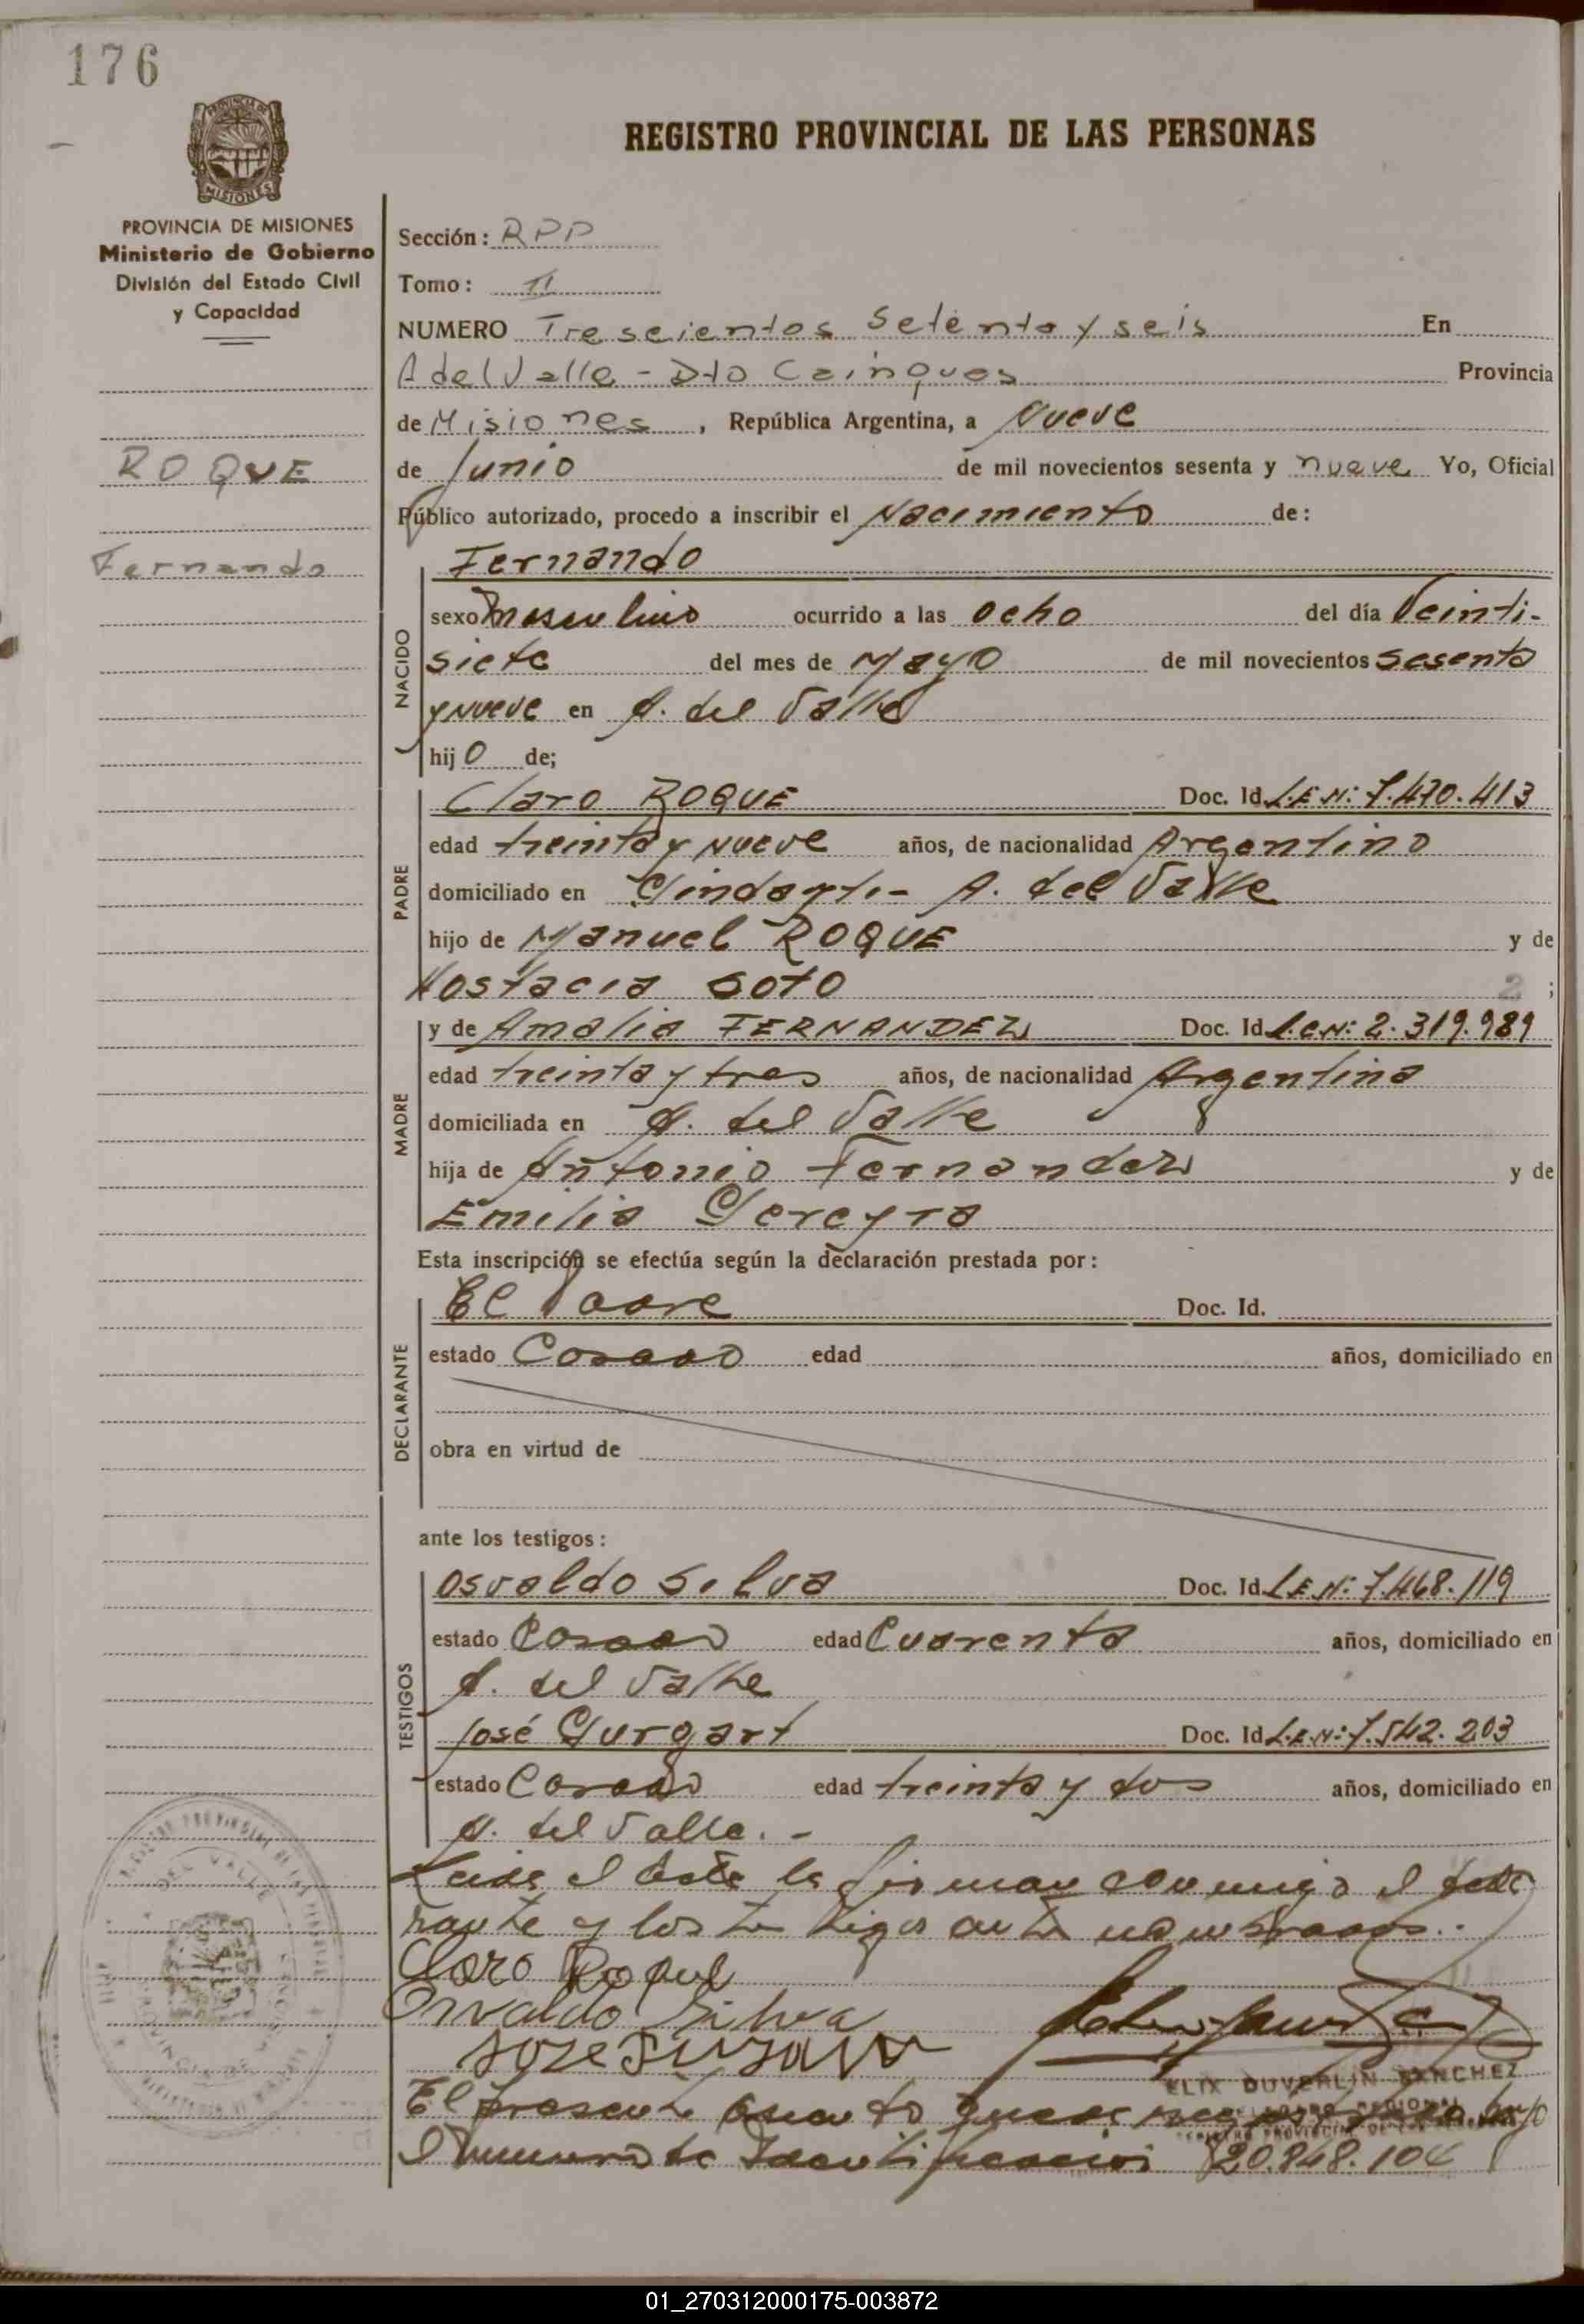 176
PROVINCIA DE MISIONES
REGISTRO PROVINCIAL DE LAS PERSONAS
PROVINCIA DE MISIONES
Ministerio de Gobierno
División del Estado Civil
y Capacidad
ROQUE
Fernando
Sección: RPP
Tomo: II
NUMERO Trescientos Setenta y seis En
A del Valle - Dto Cainguas Provincia
de Misiones, República Argentina, a Nueve
de Junio de mil novecientos sesenta y nueve Yo, Oficial
Público autorizado, procedo a inscribir el Nacimiento de:
NACIDO
Fernando
sexo Masculino ocurrido a las ocho del día Veinti-
siete del mes de Mayo de mil novecientos sesenta
y nueve en A. del Valle
hijo de;
PADRE
Claro ROQUE Doc. Id. L.E.N: 7.470.413
edad treinta y nueve años, de nacionalidad Argentino
domiciliado en Pindayti - A. del Valle
hijo de Manuel ROQUE y de
Nostacia Soto ;
MADRE
y de Amalia FERNANDEZ Doc. Id. L.C.N: 2.319.989
edad treinta y tres años, de nacionalidad Argentina
domiciliada en A. del Valle
hija de Antonio Fernandez y de
Emilia Pereyra
Esta inscripción se efectúa según la declaración prestada por:
DECLARANTE
El Padre Doc. Id.
estado Casado edad años, domiciliado en
obra en virtud de
ante los testigos:
TESTIGOS
Osvaldo Silva Doc. Id. L.E.N: 7.468.119
estado Casado edad Cuarenta años, domiciliado en
A. del Valle
José Purgart Doc. Id. L.E.N: 7.542.203
estado Casado edad treinta y dos años, domiciliado en
A. del Valle. -
Leida el acta la firman conmigo el decla
rante y los testigos ante nombrados.
Claro Roque
Osvaldo Silva
JOSE
ELIX DUVERLIN SANCHEZ
El presente asiento queda bajo
el numero de Identificacion 20.848.104
01_270312000175-003872